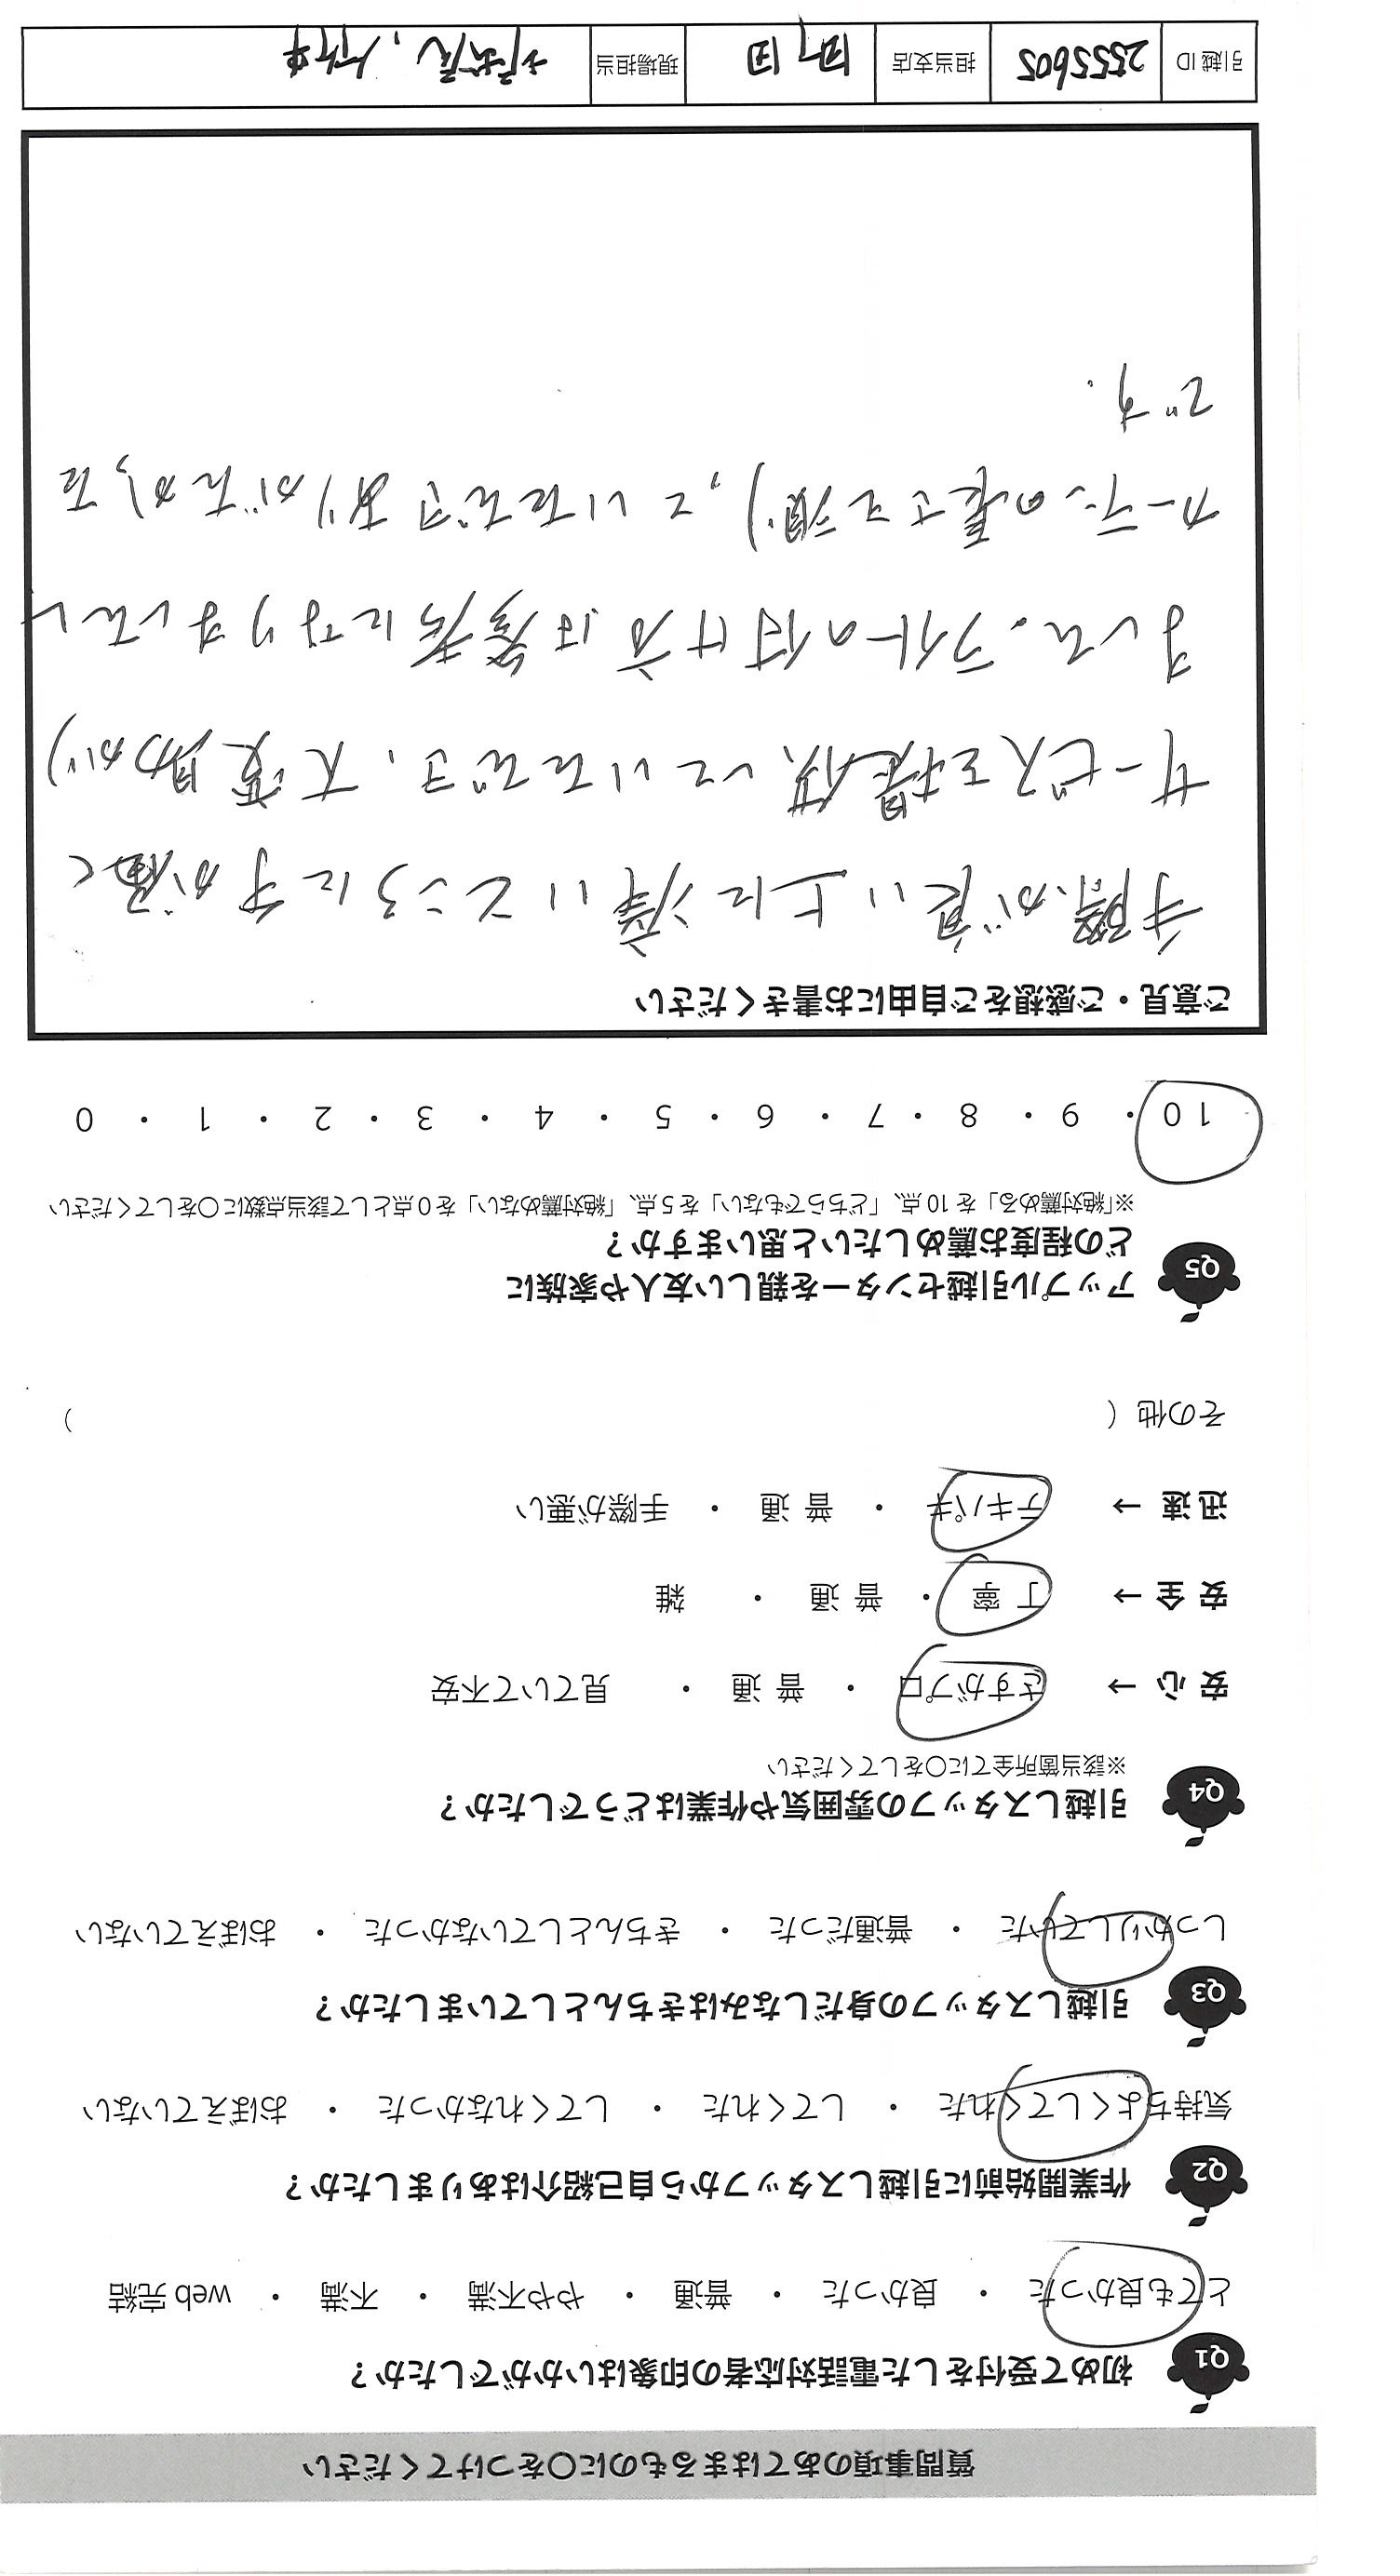 質問事項のあてはまるものに〇をつけてください
Q1 初めて受付をした電話対応者の印象はいかがでしたか？
とても良かった ・ 良かった ・ 普通 ・ やや不満 ・ 不満 ・ web 完結
Q2 作業開始前に引越しスタッフから自己紹介はありましたか？
気持ちよくしてくれた ・ してくれた ・ してくれなかった ・ おぼえていない
Q3 引越しスタッフの身だしなみはきちんとしていましたか？
しっかりしていた ・ 普通だった ・ きちんとしていなかった ・ おぼえていない
Q4 引越しスタッフの雰囲気や作業はどうでしたか？
※該当箇所全てに〇をしてください
安 心 → さすがプロ ・ 普 通 ・ 見ていて不安
安 全 → 丁 寧 ・ 普 通 ・ 雑
迅 速 → テキパキ ・ 普 通 ・ 手際が悪い
その他（ ）
Q5 アップル引越センターを親しい友人や家族に
どの程度お薦めしたいと思いますか？
※「絶対薦める」を 10 点、「どちらでもない」を 5 点、「絶対薦めない」を 0 点として該当点数に〇をしてください
10 ・ 9 ・ 8 ・ 7 ・ 6 ・ 5 ・ 4 ・ 3 ・ 2 ・ 1 ・ 0
ご意見・ご感想をご自由にお書きください
手際が良い上に痒いところに手が届く
サービスを提供していただき、大変助かり
ました。ライトの付け方は参考になりましたし
カーテンの長さを測っていただきありがたかった
です。
引越 ID 2555605 担当支店 町田 現場担当